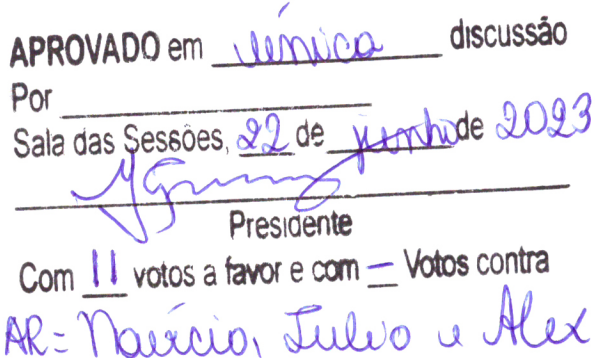 APROVADO em única discussão
Por
Sala das Sessões, 22 de junho de 2023
Presidente
Com 11 votos a favor e com — Votos contra
AR= Maércio, Tulio e Alex